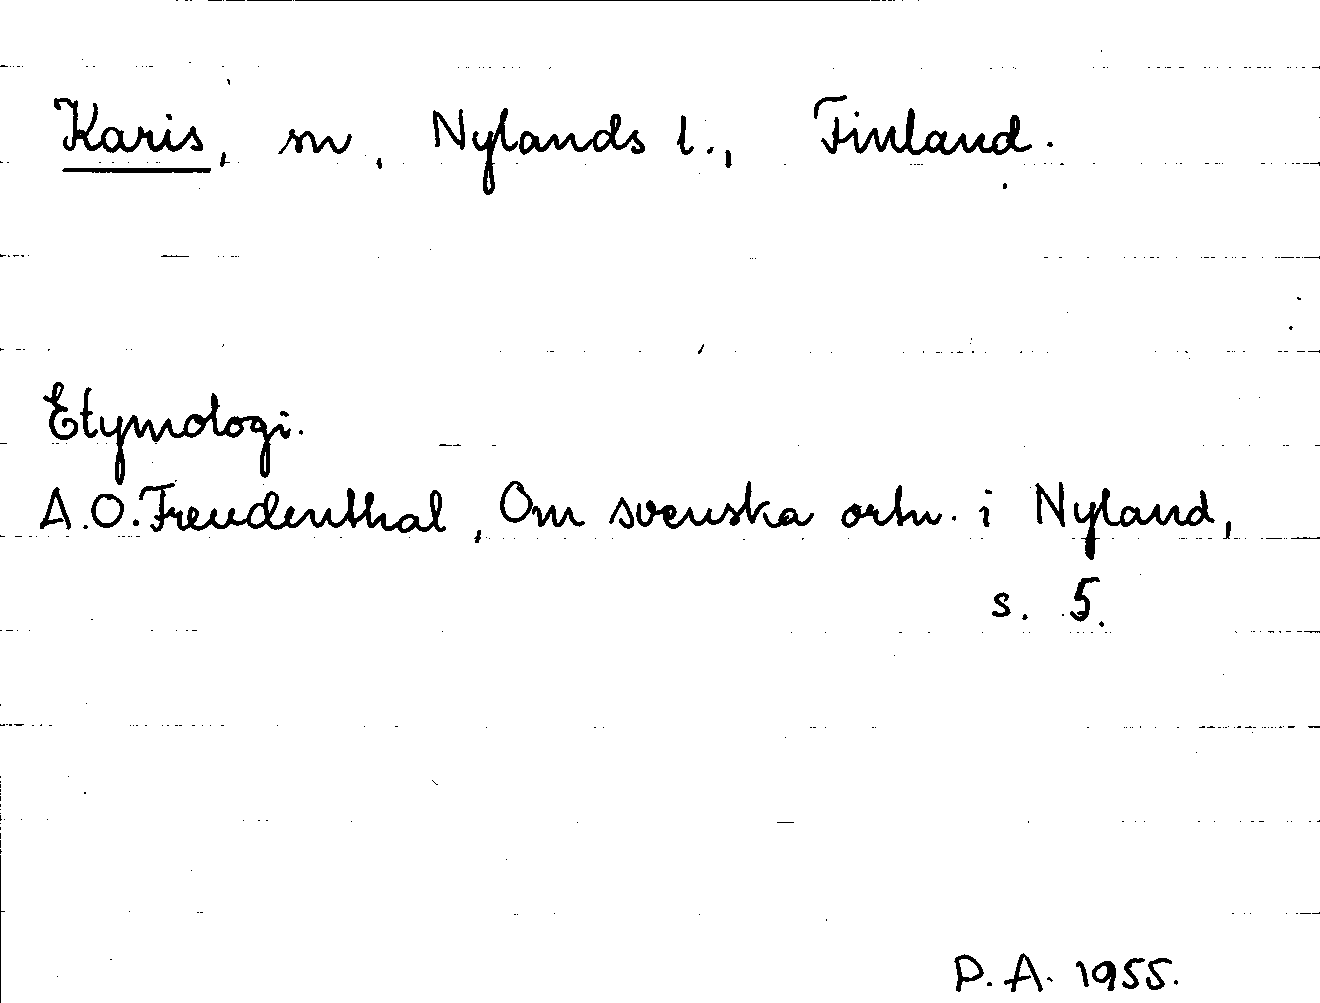 Karis, sn, Nylands l., Finland.
Etymologi.
A.O. Freudenthal, Om svenska ortn. i Nyland,
s. 5.
P.A. 1955.